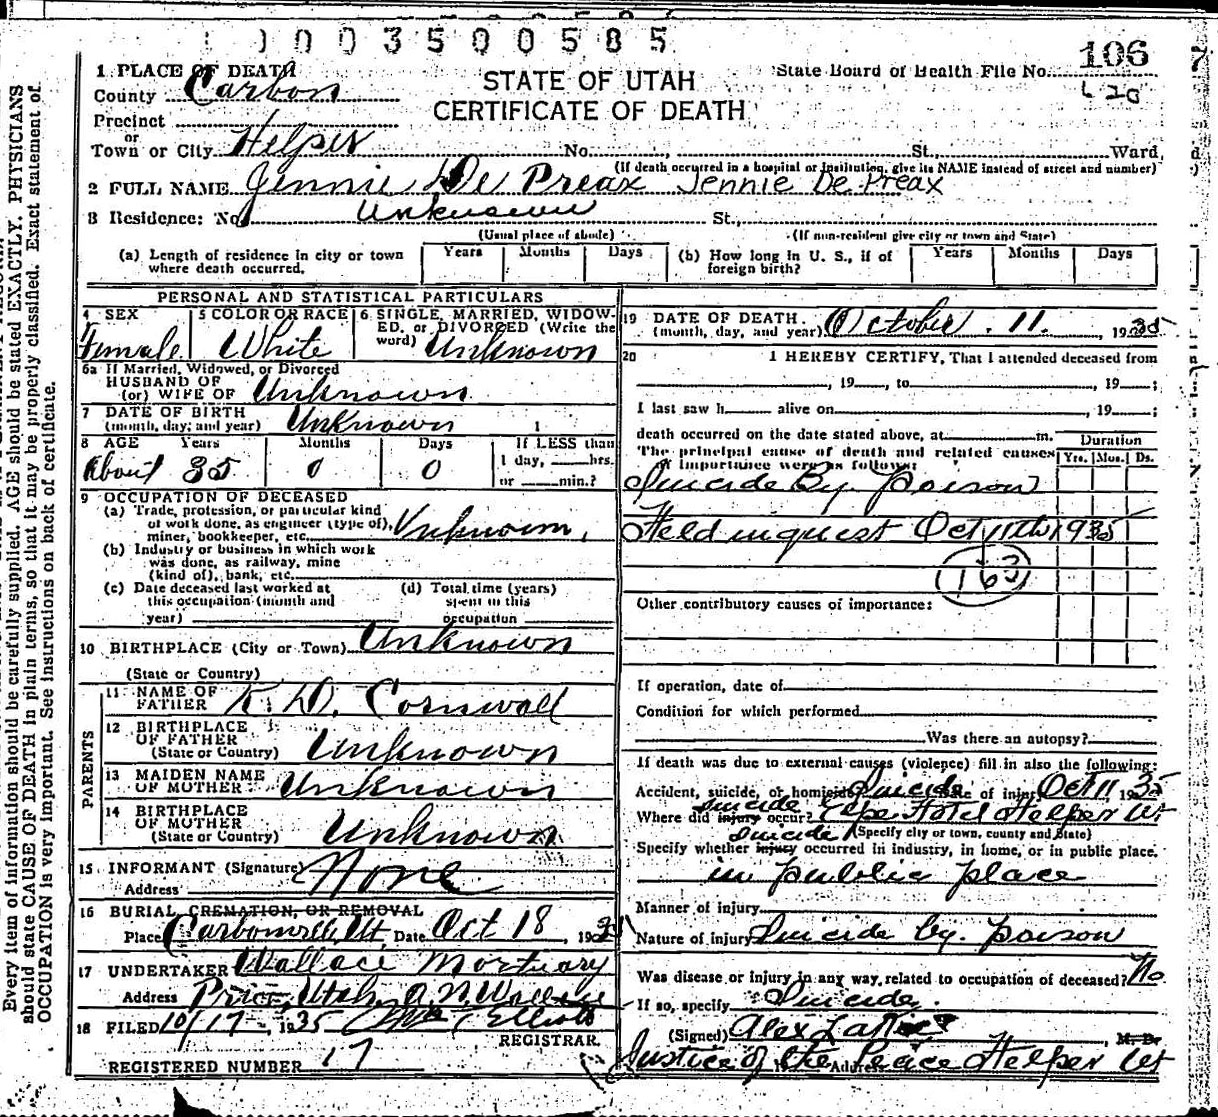 1003500585
106
1 PLACE OF DEATH
STATE OF UTAH
State Board of Health File No.
County Carbon
CERTIFICATE OF DEATH
Precinct
or
Town or City Helper No. St. Ward
(If death occurred in a hospital or institution, give its NAME instead of street and number)
2 FULL NAME Jennie De Preax Jennie De Preax
3 Residence: No. Unknown St.
(Usual place of abode) (If non-resident give city or town and State)
(a) Length of residence in city or town where death occurred. Years Months Days
(b) How long in U. S., if of foreign birth? Years Months Days
PERSONAL AND STATISTICAL PARTICULARS
4 SEX Female
5 COLOR OR RACE White
6 SINGLE, MARRIED, WIDOWED, or DIVORCED (Write the word) Unknown
6a If Married, Widowed, or Divorced
HUSBAND OF
(or) WIFE OF Unknown
7 DATE OF BIRTH
(month, day, and year) Unknown
8 AGE Years Months Days If LESS than
About 35 0 0 1 day, hrs.
or min.?
9 OCCUPATION OF DECEASED
(a) Trade, profession, or particular kind
of work done, as engineer (type of),
miner, bookkeeper, etc. Unknown,
(b) Industry or business in which work
was done, as railway, mine
(kind of), bank, etc.
(c) Date deceased last worked at
this occupation (month and
year)
(d) Total time (years)
spent in this
occupation
10 BIRTHPLACE (City or Town) Unknown
(State or Country)
PARENTS
11 NAME OF
FATHER K. D. Cornwall
12 BIRTHPLACE
OF FATHER
(State or Country) Unknown
13 MAIDEN NAME
OF MOTHER Unknown
14 BIRTHPLACE
OF MOTHER
(State or Country) Unknown
15 INFORMANT (Signature) None
Address
16 BURIAL, CREMATION, OR REMOVAL
Place Ut. Date Oct 18, 1935
17 UNDERTAKER Wallace Mortuary
Address Price, Utah. Wallace
18 FILED 10/17, 1935 Elliott
REGISTRAR.
REGISTERED NUMBER 17
19 DATE OF DEATH
(month, day, and year) October 11. 1935
20 I HEREBY CERTIFY, That I attended deceased from
, 19 , to , 19 ;
I last saw h alive on , 19 ;
death occurred on the date stated above, at m.
Duration
The principal cause of death and related causes
of importance were as follows:
Yrs. Mos. Ds.
Suicide By Poison
Held inquest Oct 11th 1935
163
Other contributory causes of importance:
If operation, date of
Condition for which performed
Was there an autopsy?
If death was due to external causes (violence) fill in also the following:
Accident, suicide, or homicide Suicide Date of injury Oct 11 1935
suicide
Where did injury occur? Hotel Helper Ut
suicide (Specify city or town, county and State)
Specify whether injury occurred in industry, in home, or in public place.
in public place
Manner of injury
Nature of injury Suicide by poison
Was disease or injury in any way related to occupation of deceased? No
If so, specify Suicide.
(Signed) Alex , M. D.
Justice of the Peace Address Helper Ut
Every item of information should be carefully supplied. AGE should be stated EXACTLY. PHYSICIANS
should state CAUSE OF DEATH in plain terms, so that it may be properly classified. Exact statement of
OCCUPATION is very important. See instructions on back of certificate.